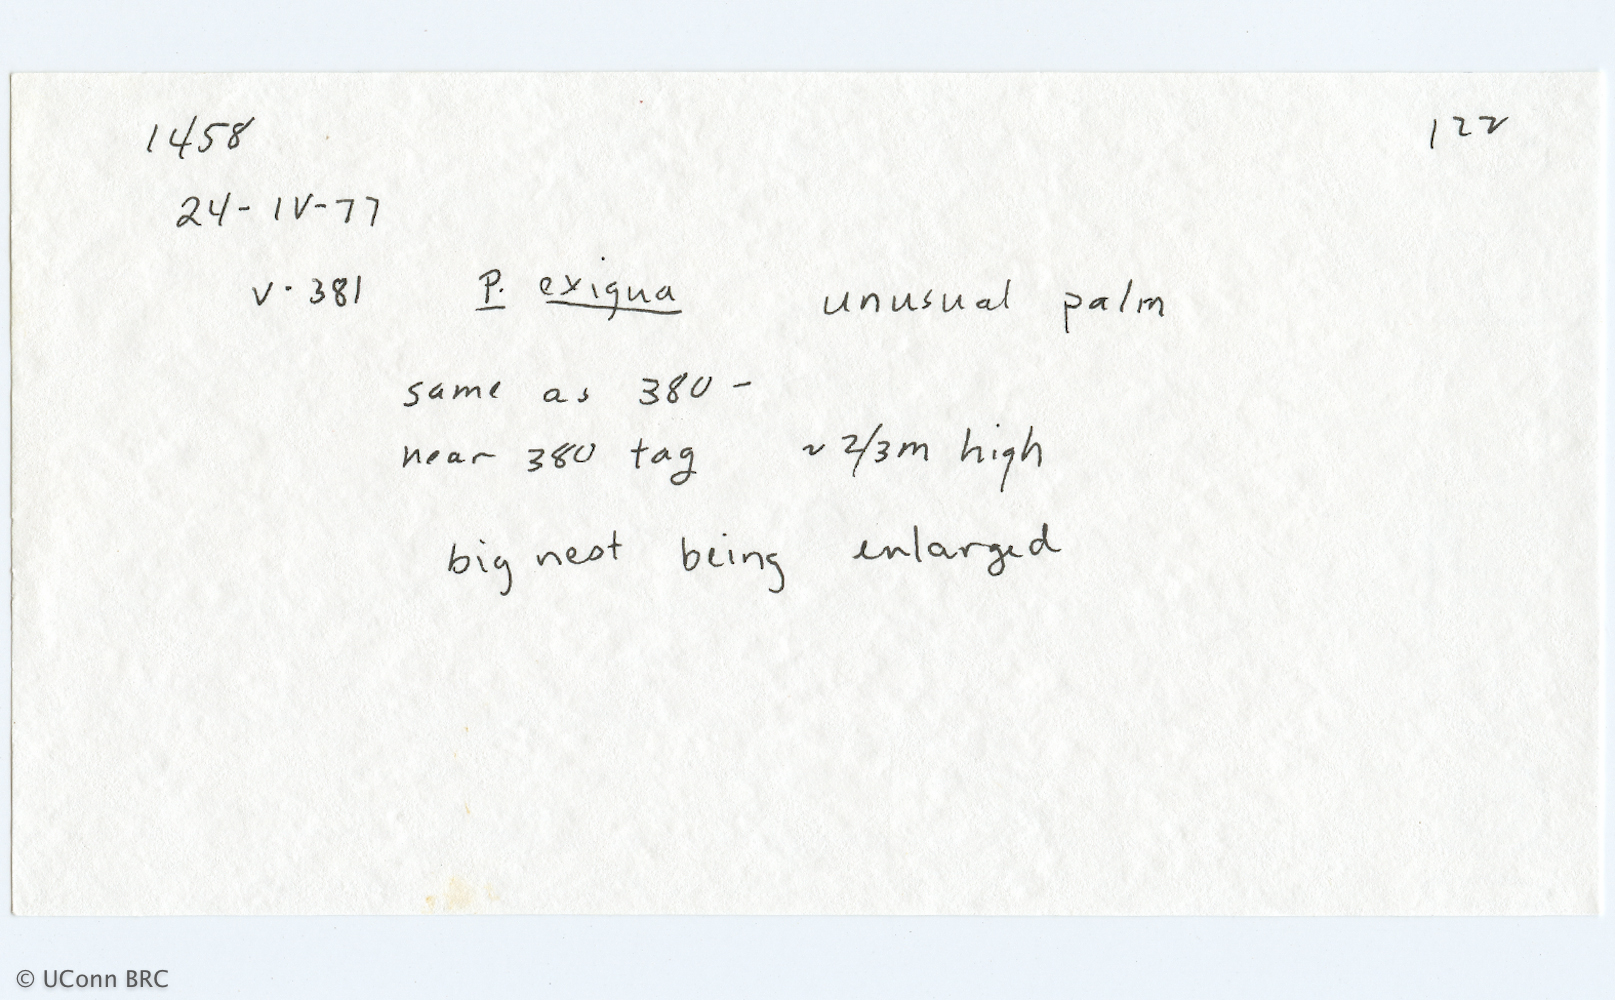 1458 122
24-IV-77
V·381 P. exigua unusual palm
same as 380 -
near 380 tag ~ 2/3m high
big nest being enlarged
© UConn BRC